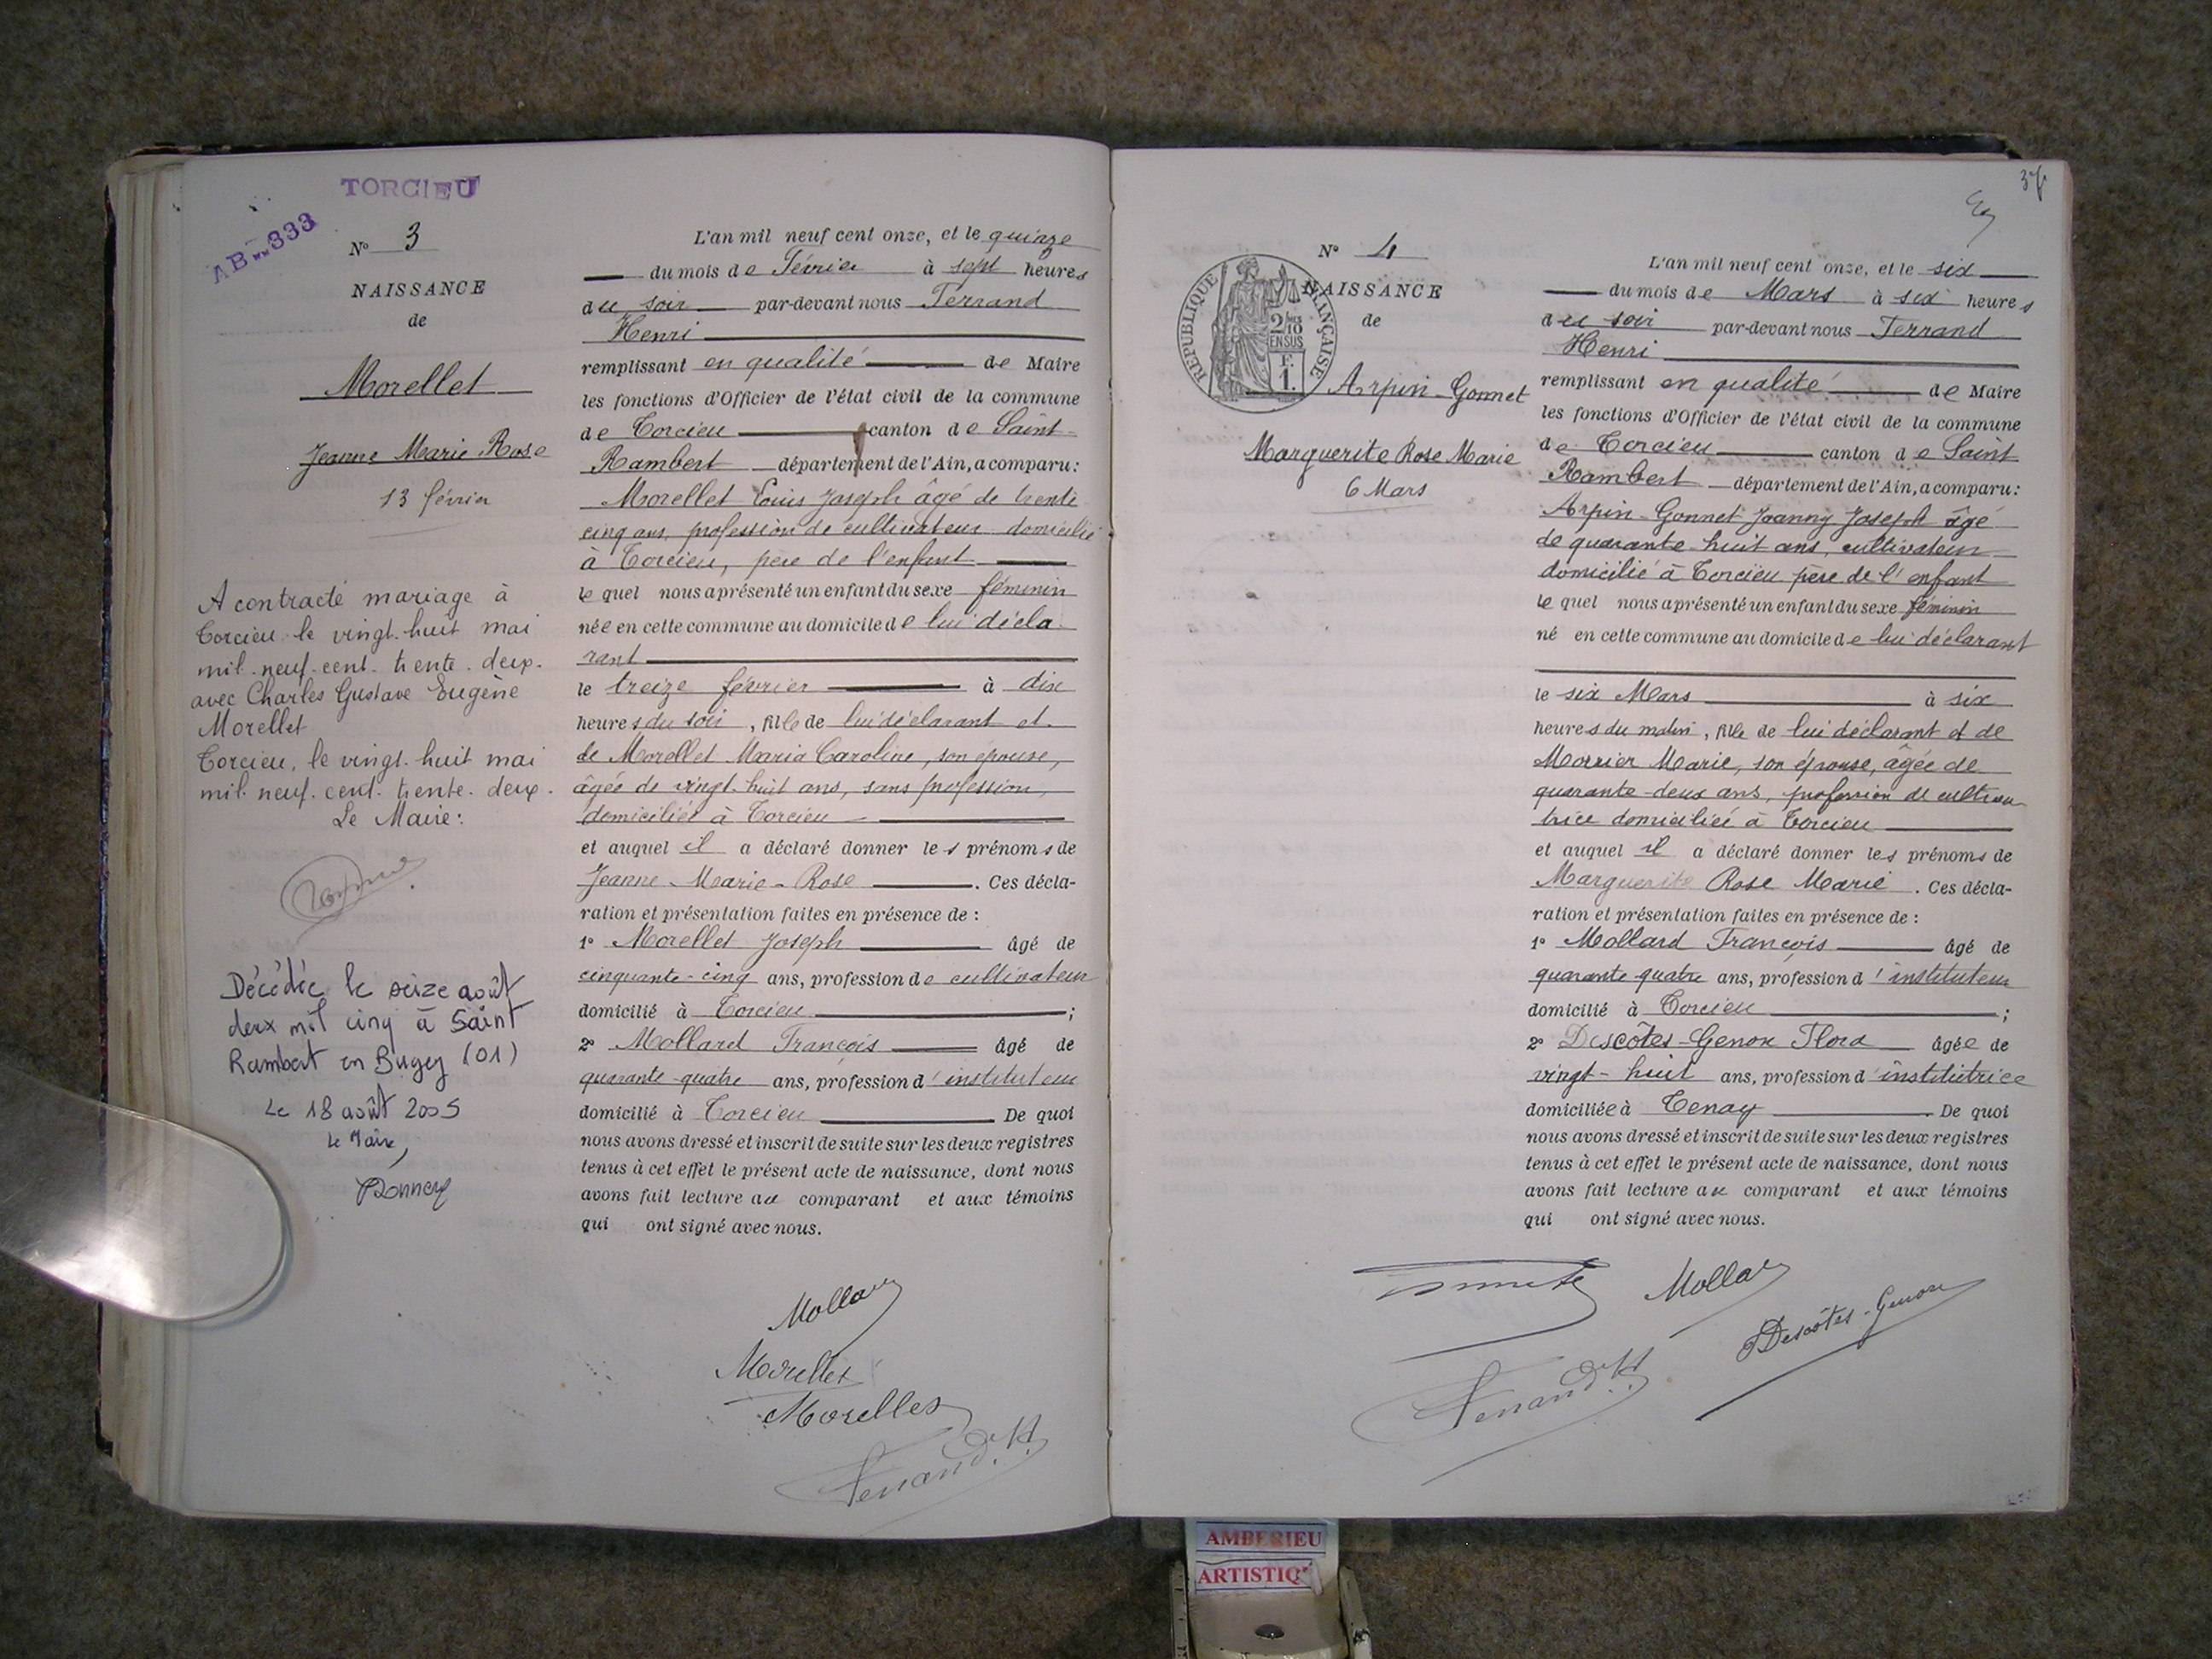 TORCIEU
AB 333
N° 3
NAISSANCE
de
Morellet
Jeanne Marie Rose
13 février
A contracté mariage à
Torcieu le vingt-huit mai
mil-neuf-cent-trente-deux.
avec Charles Gustave Eugène
Morellet
Torcieu, le vingt-huit mai
mil-neuf-cent-trente-deux.
Le Maire:
Décédée le seize août
deux mil cinq à Saint
Rambert en Bugey (01)
Le 18 août 2005
Le Maire,
L'an mil neuf cent onze, et le quinze
du mois de Février à sept heures
du soir par-devant nous Ferrand
Henri
remplissant en qualité de Maire
les fonctions d'Officier de l'état civil de la commune
de Torcieu canton de Saint-
Rambert département de l'Ain, a comparu:
Morellet Louis Joseph âgé de trente
cinq ans, profession de cultivateur domicilié
à Torcieu, père de l'enfant
lequel nous a présenté un enfant du sexe féminin
née en cette commune au domicile de lui décla-
rant
le treize février à dix
heures du soir, fille de lui déclarant et
de Morellet Maria Caroline, son épouse,
âgée de vingt-huit ans, sans profession,
domiciliée à Torcieu
et auquel il a déclaré donner les prénoms de
Jeanne-Marie-Rose. Ces décla-
ration et présentation faites en présence de:
1° Morellet Joseph âgé de
cinquante-cinq ans, profession de cultivateur
domicilié à Torcieu;
2° Mollard François âgé de
quarante-quatre ans, profession d'instituteur
domicilié à Torcieu De quoi
nous avons dressé et inscrit de suite sur les deux registres
tenus à cet effet le présent acte de naissance, dont nous
avons fait lecture au comparant et aux témoins
qui ont signé avec nous.
Mollard
Morellet
Morellet
Ferrand H.
37
N° 4
NAISSANCE
de
RÉPUBLIQUE FRANÇAISE
2/10
EN SUS
F.
1.
Arpin-Gonnet
Marguerite Rose Marie
6 Mars
L'an mil neuf cent onze, et le six
du mois de Mars à six heures
du soir par-devant nous Ferrand
Henri
remplissant en qualité de Maire
les fonctions d'Officier de l'état civil de la commune
de Torcieu canton de Saint
Rambert département de l'Ain, a comparu:
Arpin-Gonnet Joanny Joseph âgé
de quarante-huit ans, cultivateur
domicilié à Torcieu père de l'enfant
lequel nous a présenté un enfant du sexe féminin
né en cette commune au domicile de lui déclarant
le six Mars à six
heures du matin, fille de lui déclarant et de
Morrier Marie, son épouse, âgée de
quarante-deux ans, profession de cultiva
trice domiciliée à Torcieu
et auquel il a déclaré donner les prénoms de
Marguerite Rose Marie. Ces décla-
ration et présentation faites en présence de:
1° Mollard François âgé de
quarante-quatre ans, profession d'instituteur
domicilié à Torcieu;
2° Descôtes-Genon Flora âgée de
vingt-huit ans, profession d'institutrice
domiciliée à Tenay. De quoi
nous avons dressé et inscrit de suite sur les deux registres
tenus à cet effet le présent acte de naissance, dont nous
avons fait lecture au comparant et aux témoins
qui ont signé avec nous.
Mollard
Descôtes-Genon
Ferrand H.
AMBERIEU
ARTISTIQ